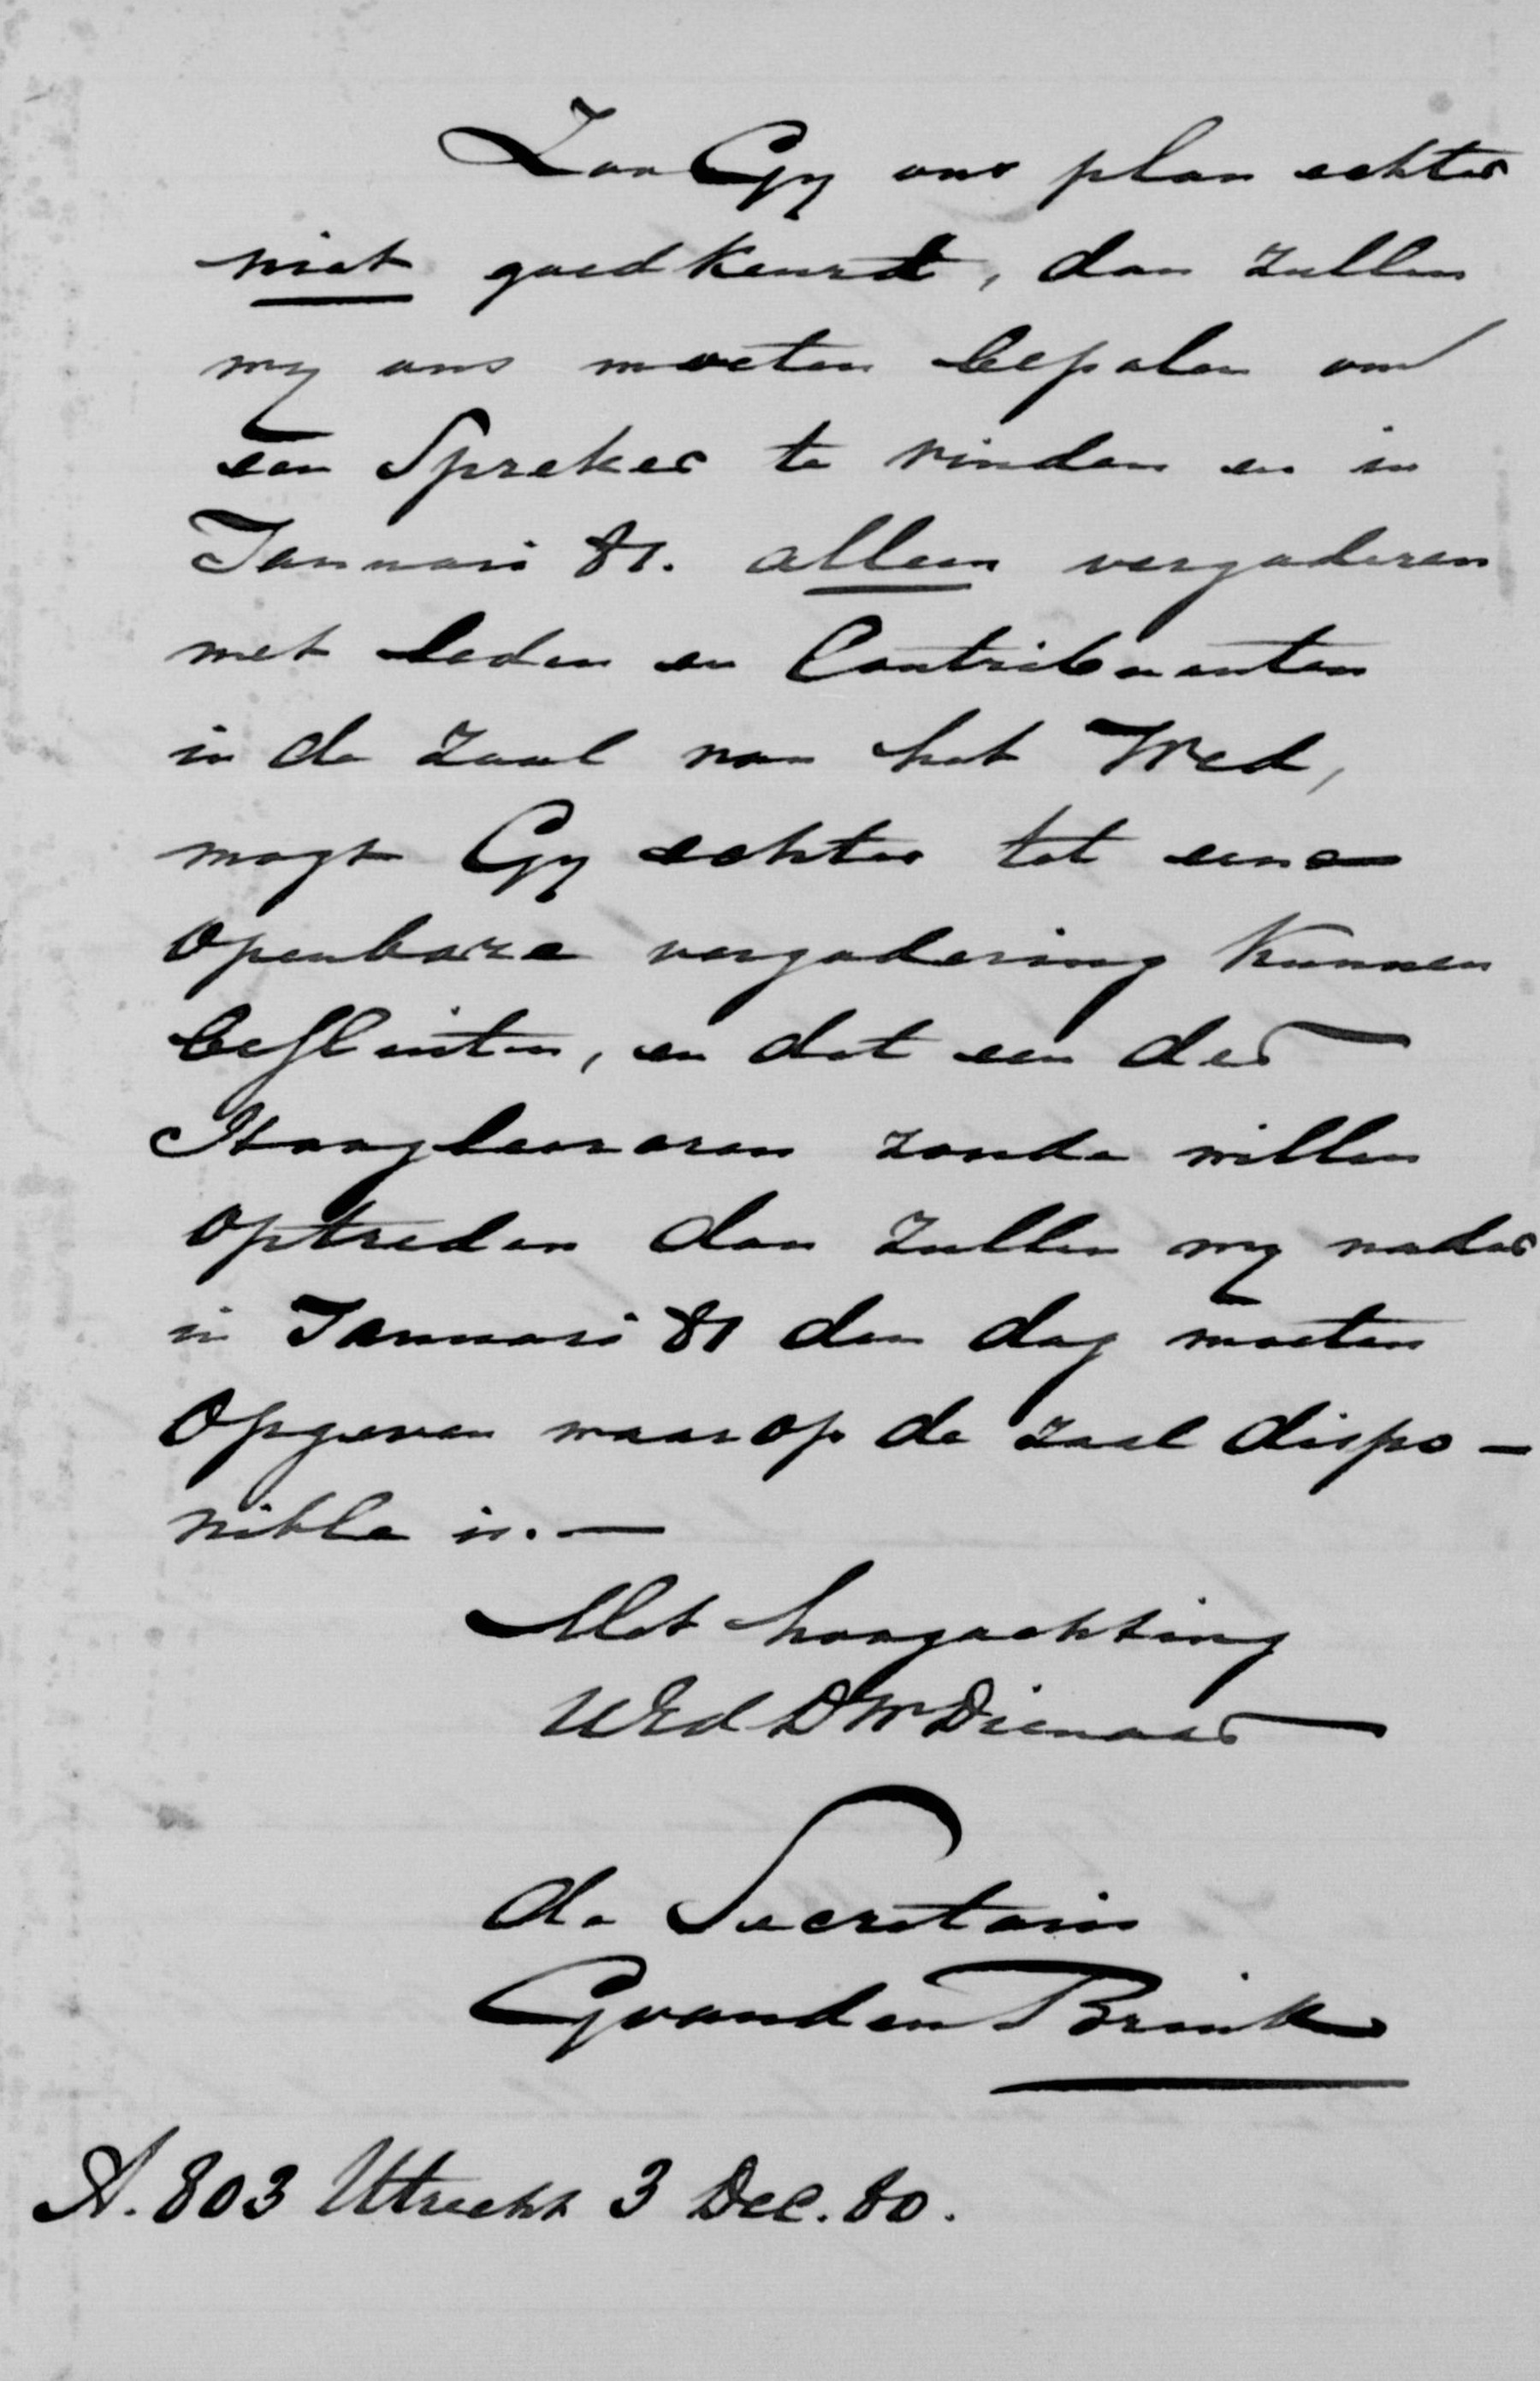 Zoo Gy ons plan echter
niet goedkeurdt, dan zullen
wy ons moeten bepalen om
een Spreker te vinden en in
Januari 81. alleen vergaderen
met leden en Contribuanten
in de zaal van het Wed,
mogt Gy echter tot eene
openbare vergadering kunnen
besluiten, en dat een der
Hoogleeraren zoude willen
optreden dan zullen wy nader
in Januari 81 den dag moeten
opgeven waarop de zaal dispo-
nible is.—
Met hoogachting
UEd DW Dienaar
de Secretaris
G van den Brink
A. 803 Utrecht 3 Dec. 80.